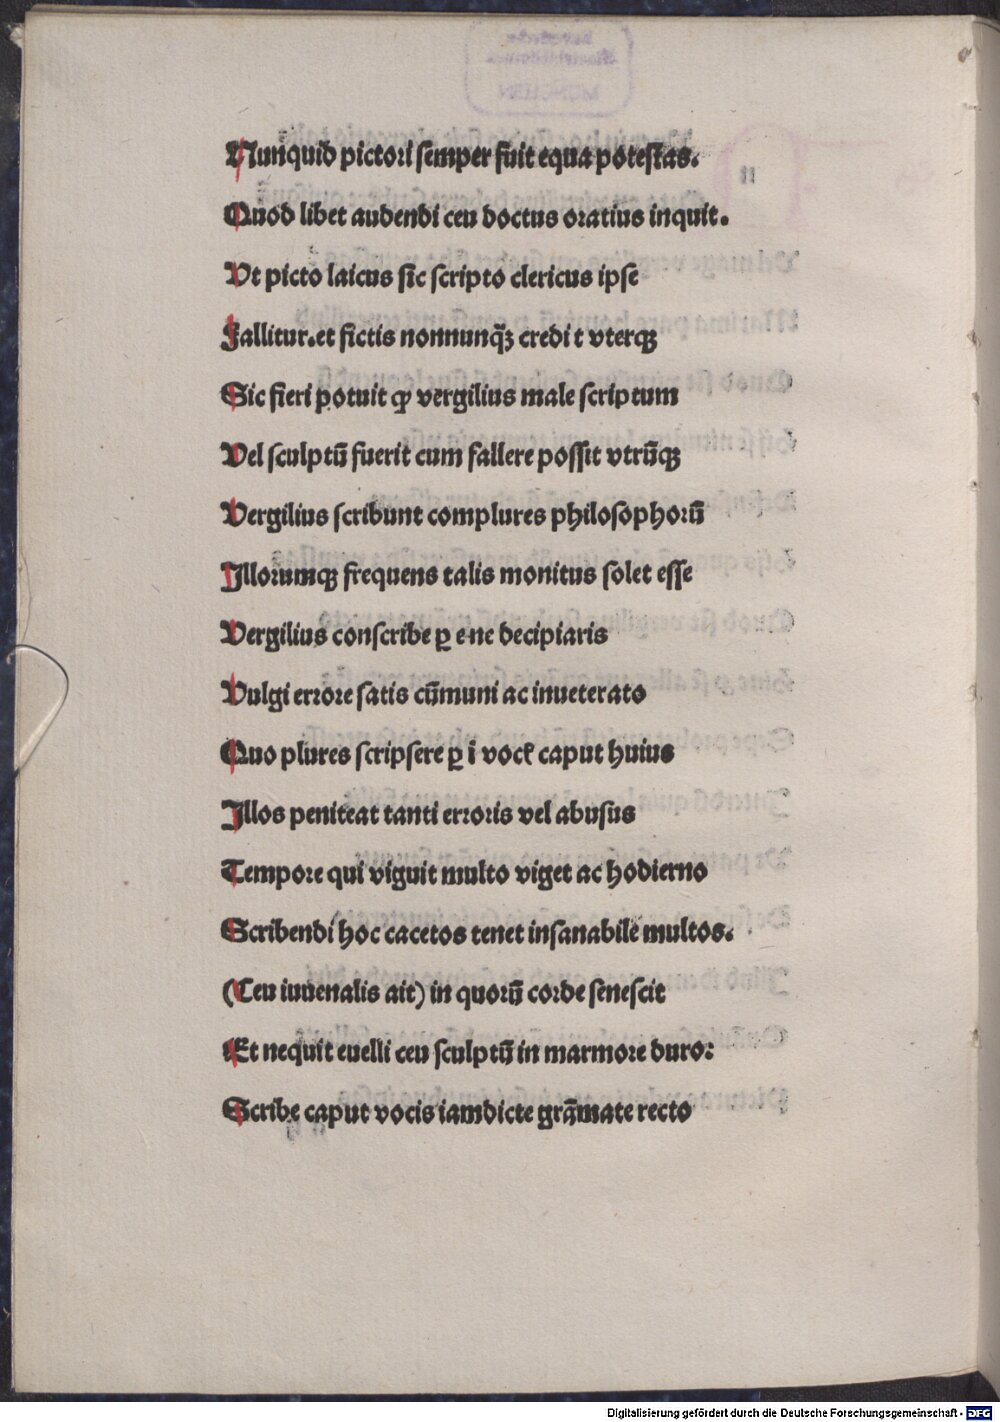 Nunquid pictori semper fuit equa potestas.
Quod libet audendi ceu doctus oratius inquit.
Ut picto laicus sic scripto clericus ipse
Fallitur.et fictis nonnunq̃ꝫ credit vterqꝫ
Sic fieri potuit ꝙ vergilius male scriptum
Vel sculptũ fuerit cum fallere possit vtrũqꝫ
Vergilius scribunt complures philosophorũ
Illorumqꝫ frequens talis monitus solet esse
Vergilius conscribe ꝑ e ne decipiaris
Vulgi errore satis cũmuni ac inueterato
Quo plures scripsere ꝑ ĩ vocẽ caput huius
Illos peniteat tanti erroris vel abusus
Tempore qui viguit multo viget ac hodierno
Scribendi hoc cacetos tenet insanabile multos.
(Ceu iuuenalis ait) in quorũ corde senescit
Et nequit euelli ceu sculptũ in marmore duro:
Scribe caput vocis iamdicte grãmate recto
Digitalisierung gefördert durch die Deutsche Forschungsgemeinschaft - DFG